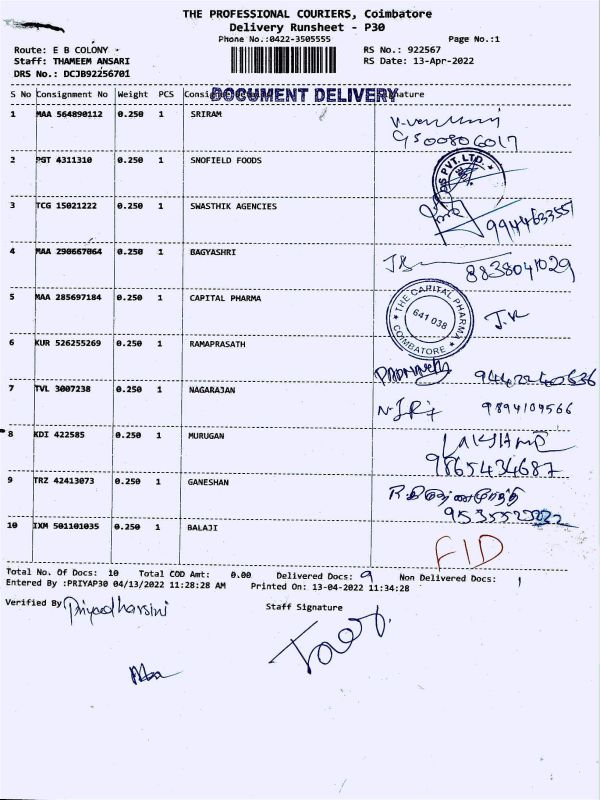 THE PROFESSIONAL COURIERS, Coimbatore
Delivery Runsheet - P30
Phone No.:0422-3505555
Page No.:1
Route: E B COLONY
RS No.: 922567
Staff: THAMEEM ANSARI
RS Date: 13-Apr-2022
DRS No.: DCJB92256701
S No Consignment No Weight PCS
DOCUMENT DELIVERY
1 MAA 564890112 0.250 1 SRIRAM
9500806017
2 PGT 4311310 0.250 1 SNOFIELD FOODS
PVT. LTD.
3 TCG 15021222 0.250 1 SWASTHIK AGENCIES
4 MAA 290667064 0.250 1 BAGYASHRI
8838041029
5 MAA 285697184 0.250 1 CAPITAL PHARMA
THE CAPITAL PHARMA
641 038
COIMBATORE
J.R
6 KUR 526255269 0.250 1 RAMAPRASATH
7 TVL 3007238 0.250 1 NAGARAJAN
9894109566
8 KDI 422585 0.250 1 MURUGAN
9865434687
9 TRZ 42413073 0.250 1 GANESHAN
10 IXM 501101035 0.250 1 BALAJI
FID
Total No. Of Docs: 10 Total COD Amt: 0.00 Delivered Docs: 9 Non Delivered Docs: 1
Entered By :PRIYAP30 04/13/2022 11:28:28 AM Printed On: 13-04-2022 11:34:28
Verified By Priyadharsini
Staff Signature